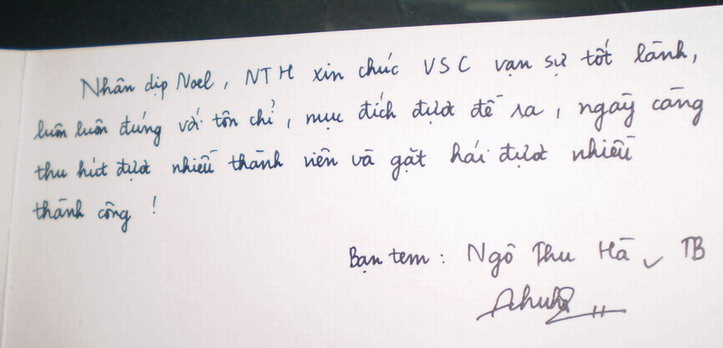 Nhân dịp Noel, NTH xin chúc VSC vạn sự tốt lành,
luôn luôn đúng với tôn chỉ, mục đích được đề ra, ngày càng
thu hút được nhiều thành viên và gặt hái được nhiều
thành công!
Bạn tem: Ngô Thu Hà TB